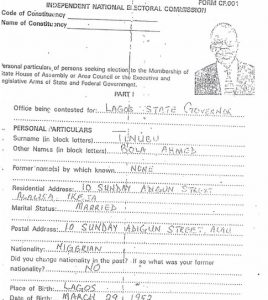 INDEPENDENT NATIONAL ELECTORAL COMMISSION
FORM CF.001
Code of Constituency
Name of Constituency
Personal particulars of persons seeking election to the Membership of
State House of Assembly or Area Council or the Executive and
Legislative Arms of State and Federal Government.
PART I
Office being contested for: LAGOS STATE GOVERNOR
PERSONAL PARTICULARS
Surname (in block letters) TINUBU
Other Names (in block letters) BOLA AHMED
Former name(s) by which known. NONE
Residential Address: 10 SUNDAY ADIGUN STREET
ALAUSA IKEJA
Marital Status: MARRIED
Postal Address: 10 SUNDAY ADIGUN STREET, ALAU
Nationality: NIGERIAN
Did you change nationality in the past? If so what was your former
nationality? NO
Place of Birth: LAGOS
Date of Birth: MARCH 29 1952